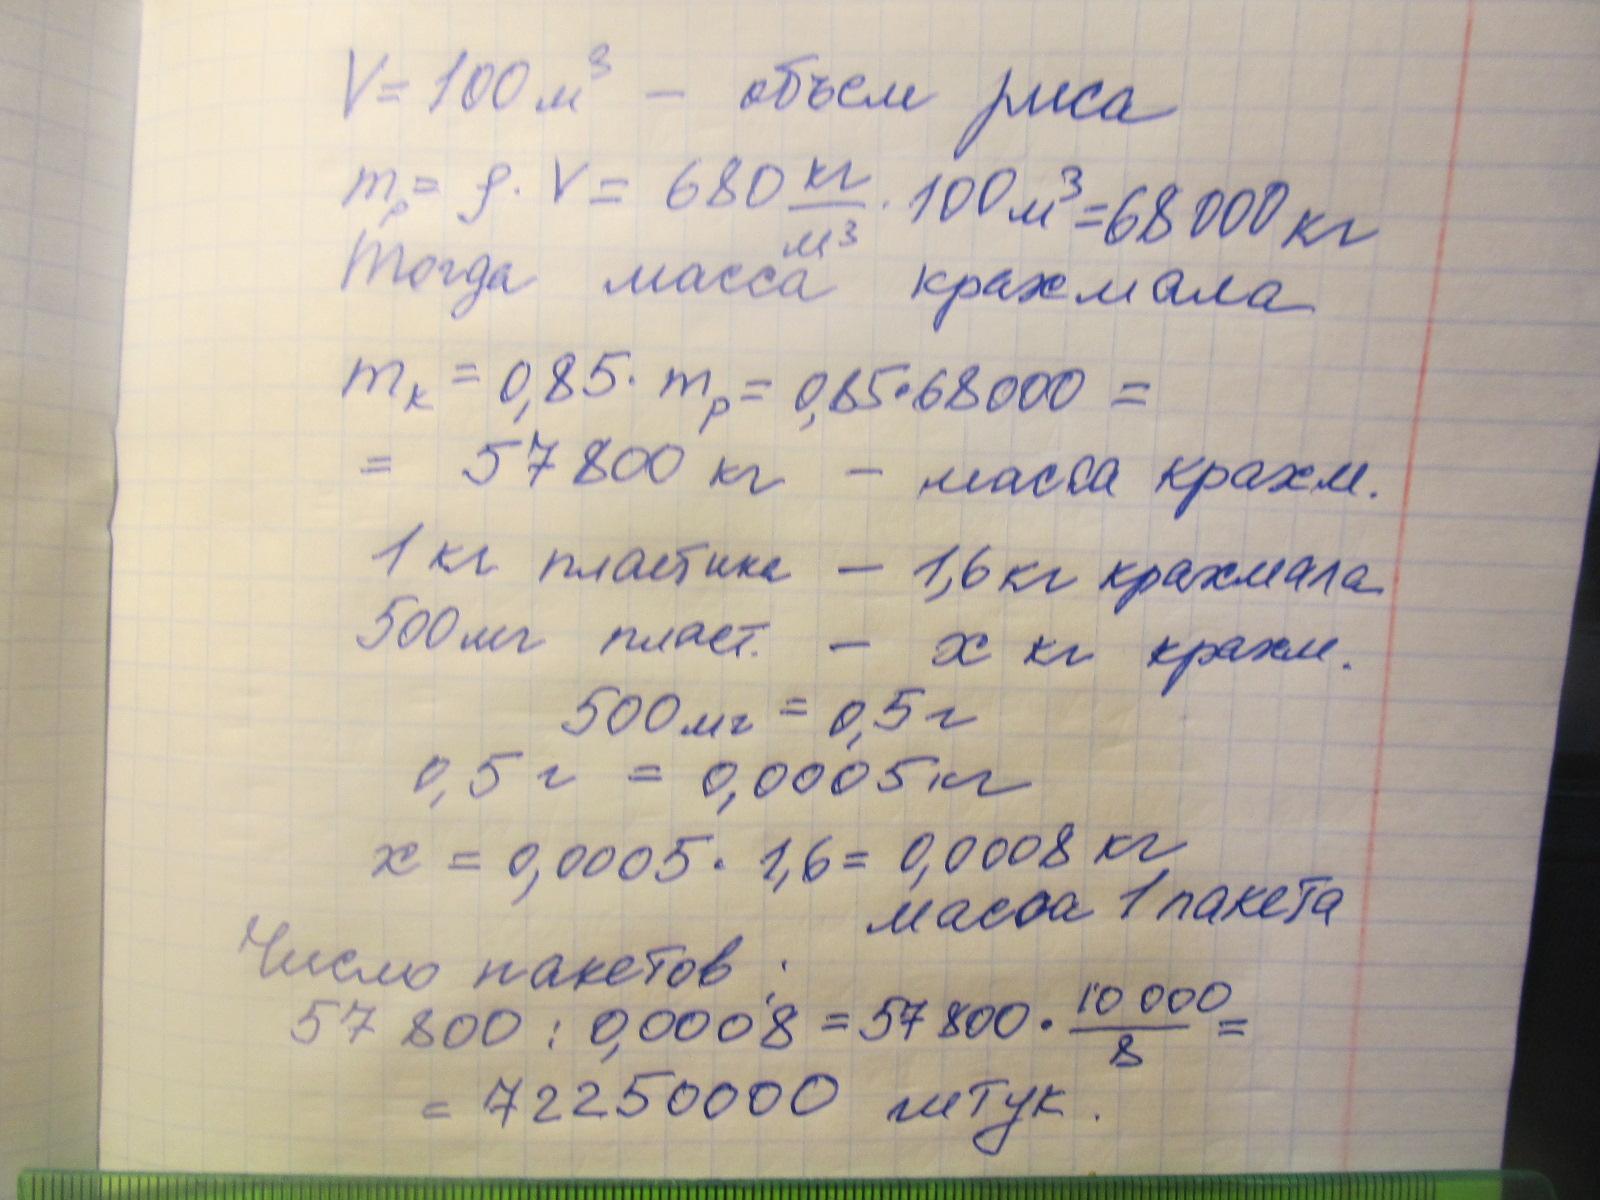 V = 100 м³ – объем риса
mр = ρ · V = 680 кг/м³ · 100 м³ = 68 000 кг
Тогда масса крахмала
mк = 0,85 · mр = 0,85 · 68000 =
= 57 800 кг – масса крахм.
1 кг пластика – 1,6 кг крахмала
500 мг пласт. – x кг крахм.
500 мг = 0,5 г
0,5 г = 0,0005 кг
x = 0,0005 · 1,6 = 0,0008 кг
масса 1 пакета
Число пакетов :
57 800 : 0,0008 = 57 800 · 10 000/8 =
= 72250000 штук.